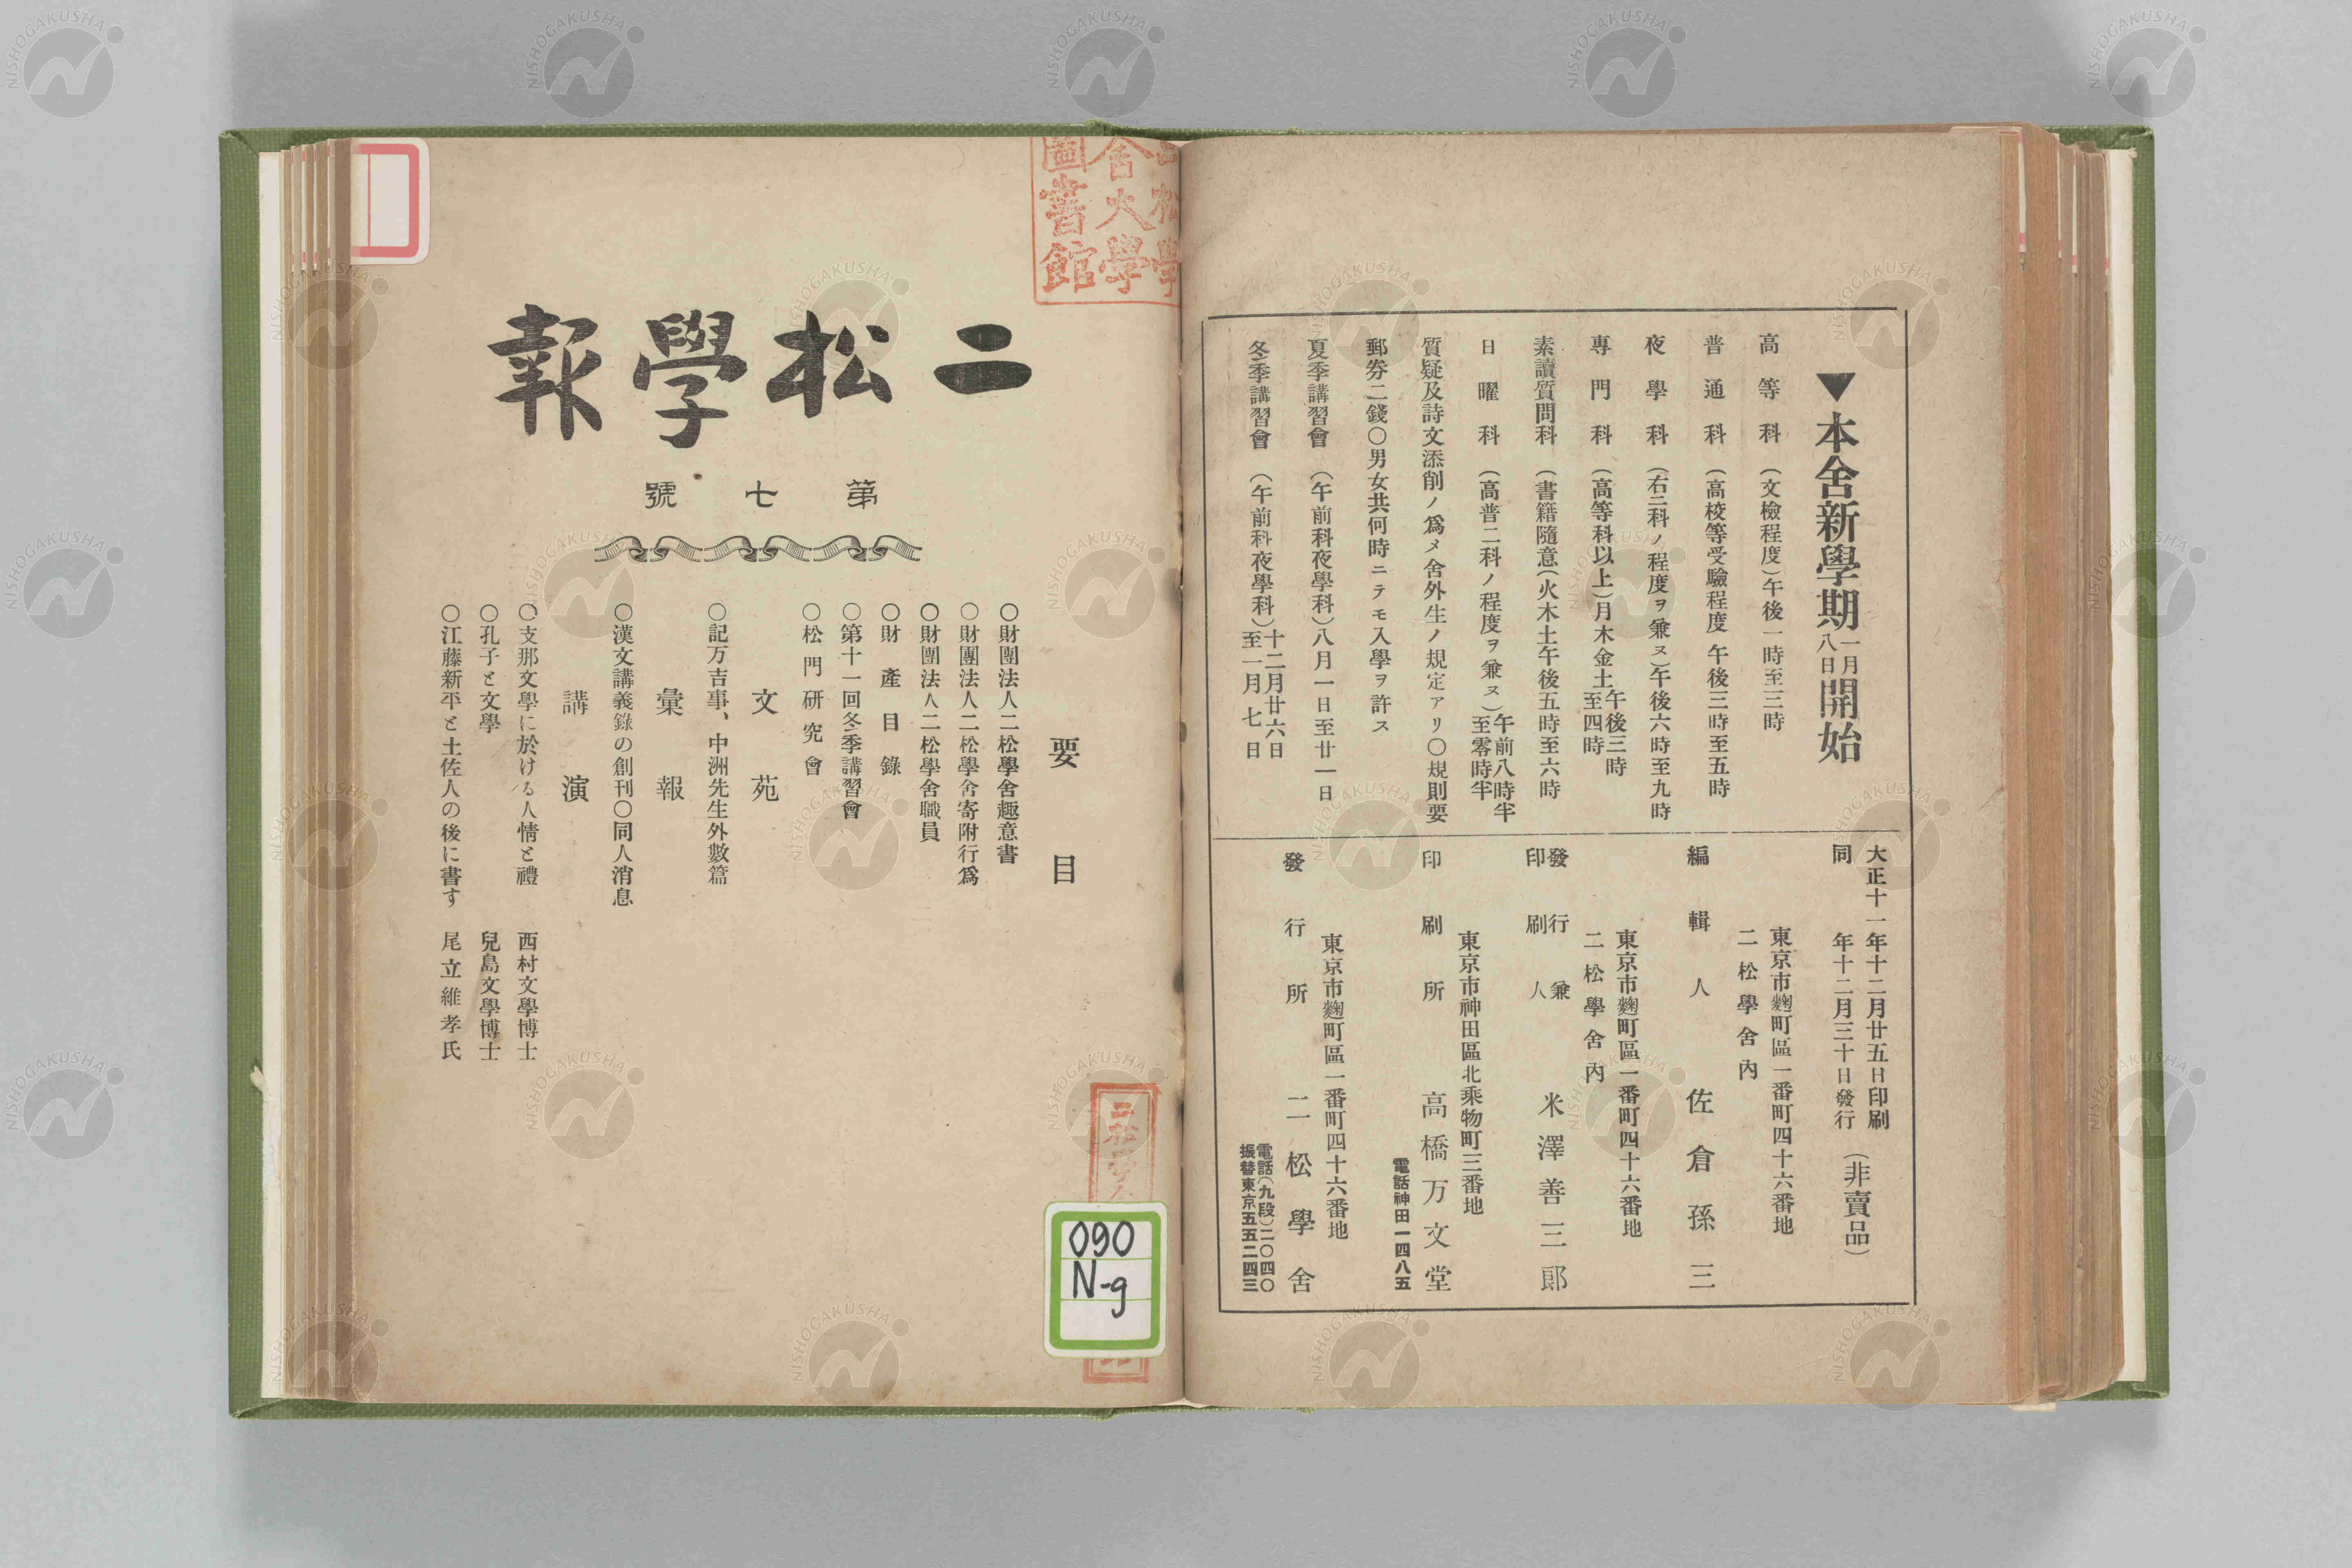 ▼本舍新學期一月八日開始
高等科（文檢程度）午後一時至三時
普通科（高校等受驗程度 午後三時至五時
夜學科（右二科ノ程度ヲ兼ヌ）午後六時至九時
專門科（高等科以上）月木金土午後三時至四時
素讀質問科（書籍隨意（火木土午後五時至六時
日曜科（高普二科ノ程度ヲ兼ヌ）午前八時半至零時半
質疑及詩文添削ノ爲メ舍外生ノ規定アリ〇規則要
郵劵二錢〇男女共何時ニテモ入學ヲ許ス
夏季講習會（午前科夜學科）八月一日至廿一日
冬季講習會（午前科夜學科）十二月廿六日至一月七日
大正十一年十二月廿五日印刷
同年十二月三十日發行（非賣品）
東京市麴町區一番町四十六番地
二松學舍內
編輯人 佐倉孫三
東京市麴町區一番町四十六番地
二松學舍內
發行兼印刷人 米澤善三郎
東京市神田區北乘物町三番地
印刷所 高橋万文堂
電話神田一四八五
東京市麴町區一番町四十六番地
發行所 二松學舍
電話（九段）二〇四〇
振替東京五五二四三
二松學舍大學圖書館
二松學報
第七號
要目
〇財團法人二松學舍趣意書
〇財團法人二松學舍寄附行爲
〇財團法人二松學舍職員
〇財產目錄
〇第十一回冬季講習會
〇松門研究會
文苑
〇記万吉事、中洲先生外數篇
彙報
〇漢文講義錄の創刊〇同人消息
講演
〇支那文學に於ける人情と禮 西村文學博士
〇孔子と文學 兒島文學博士
〇江藤新平と土佐人の後に書す 尾立維孝氏
090
N-g
NISHOGAKUSHA